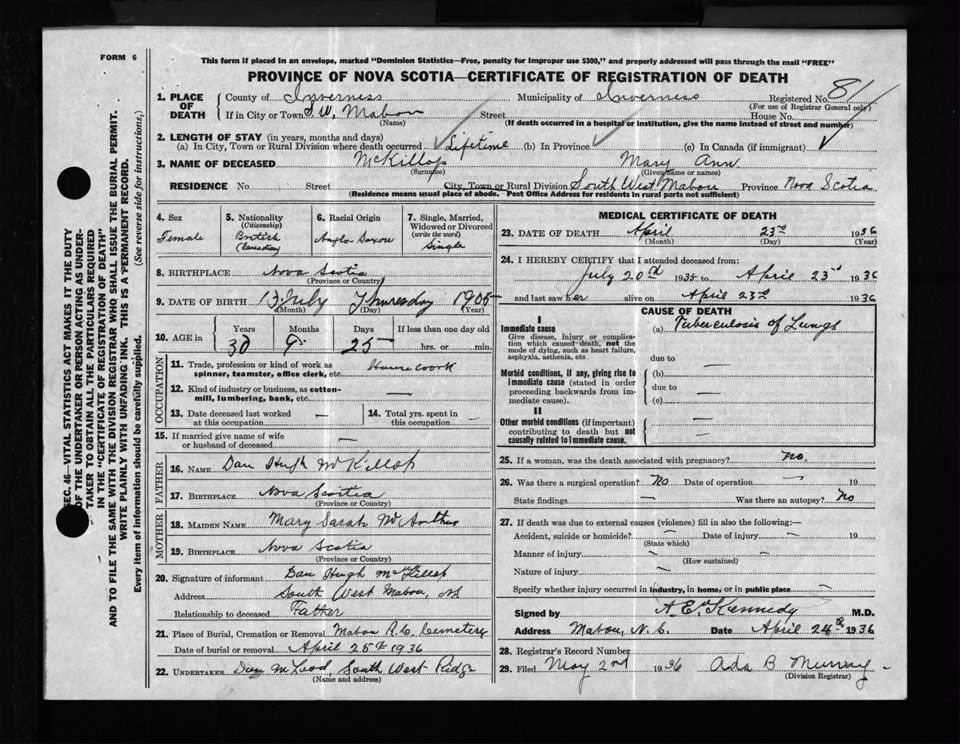 FORM 6
This form if placed in an envelope, marked "Dominion Statistics—Free, penalty for improper use $300," and properly addressed will pass through the mail "FREE"
PROVINCE OF NOVA SCOTIA—CERTIFICATE OF REGISTRATION OF DEATH
SEC. 46—VITAL STATISTICS ACT MAKES IT THE DUTY
OF THE UNDERTAKER OR PERSON ACTING AS UNDER-
TAKER TO OBTAIN ALL THE PARTICULARS REQUIRED
IN THE "CERTIFICATE OF REGISTRATION OF DEATH"
AND TO FILE THE SAME WITH THE DIVISION REGISTRAR WHO SHALL ISSUE THE BURIAL PERMIT.
WRITE PLAINLY WITH UNFADING INK. THIS IS A PERMANENT RECORD.
Every item of information should be carefully supplied. (See reverse side for instructions.)
1. PLACE OF DEATH County of Inverness Municipality of Inverness Registered No. 81
(For use of Registrar General only)
If in City or Town S.W. Mabou Street House No.
(Name) (If death occurred in a hospital or institution, give the name instead of street and number)
2. LENGTH OF STAY (in years, months and days)
(a) In City, Town or Rural Division where death occurred Lifetime (b) In Province (c) In Canada (if immigrant)
3. NAME OF DECEASED McKillop Mary Ann
(Surname) (Given name or names)
RESIDENCE No. Street City, Town or Rural Division South West Mabou Province Nova Scotia
(Residence means usual place of abode. Post Office Address for residents in rural parts not sufficient)
4. Sex 5. Nationality (Citizenship) 6. Racial Origin 7. Single, Married, Widowed or Divorced (write the word)
Female British (Canadian) Anglo Saxon Single
8. BIRTHPLACE Nova Scotia
(Province or Country)
9. DATE OF BIRTH 13 July Thursday 1905
(Month) (Day) (Year)
10. AGE in Years Months Days If less than one day old
30 9 25 hrs. or min.
OCCUPATION
11. Trade, profession or kind of work as spinner, teamster, office clerk, etc. House work
12. Kind of industry or business, as cotton-mill, lumbering, bank, etc. —
13. Date deceased last worked at this occupation — 14. Total yrs. spent in this occupation —
15. If married give name of wife or husband of deceased —
FATHER
16. NAME Dan Hugh McKillop
17. BIRTHPLACE Nova Scotia
(Province or Country)
MOTHER
18. MAIDEN NAME Mary Sarah McArthur
19. BIRTHPLACE Nova Scotia
(Province or Country)
20. Signature of informant Dan Hugh McKillop
Address South West Mabou, NS
Relationship to deceased Father
21. Place of Burial, Cremation or Removal Mabou R.C. Cemetery
Date of burial or removal April 25th 1936
22. UNDERTAKER Dan McLeod, South West Ridge
(Name and address)
MEDICAL CERTIFICATE OF DEATH
23. DATE OF DEATH April 23rd 1936
(Month) (Day) (Year)
24. I HEREBY CERTIFY that I attended deceased from:
July 20th 1935 to April 23rd 1936
and last saw her alive on April 23rd 1936
CAUSE OF DEATH
I
Immediate cause (a) Tuberculosis of Lungs
Give disease, injury or complication which caused death, not the mode of dying, such as heart failure, asphyxia, asthenia, etc.
due to
Morbid conditions, if any, giving rise to immediate cause (stated in order proceeding backwards from immediate cause).
(b) —
due to
(c) —
II
Other morbid conditions (if important) contributing to death but not causally related to immediate cause. —
—
25. If a woman, was the death associated with pregnancy? no.
26. Was there a surgical operation? No Date of operation — 19
State findings — Was there an autopsy? No
27. If death was due to external causes (violence) fill in also the following:—
Accident, suicide or homicide? — Date of injury — 19
(State which)
Manner of injury —
(How sustained)
Nature of injury —
Specify whether injury occurred in industry, in home, or in public place —
Signed by A E Kennedy M.D.
Address Mabou, N.S. Date April 24th 1936
28. Registrar's Record Number
29. Filed May 2nd 1936 Ada B Murray
(Division Registrar)